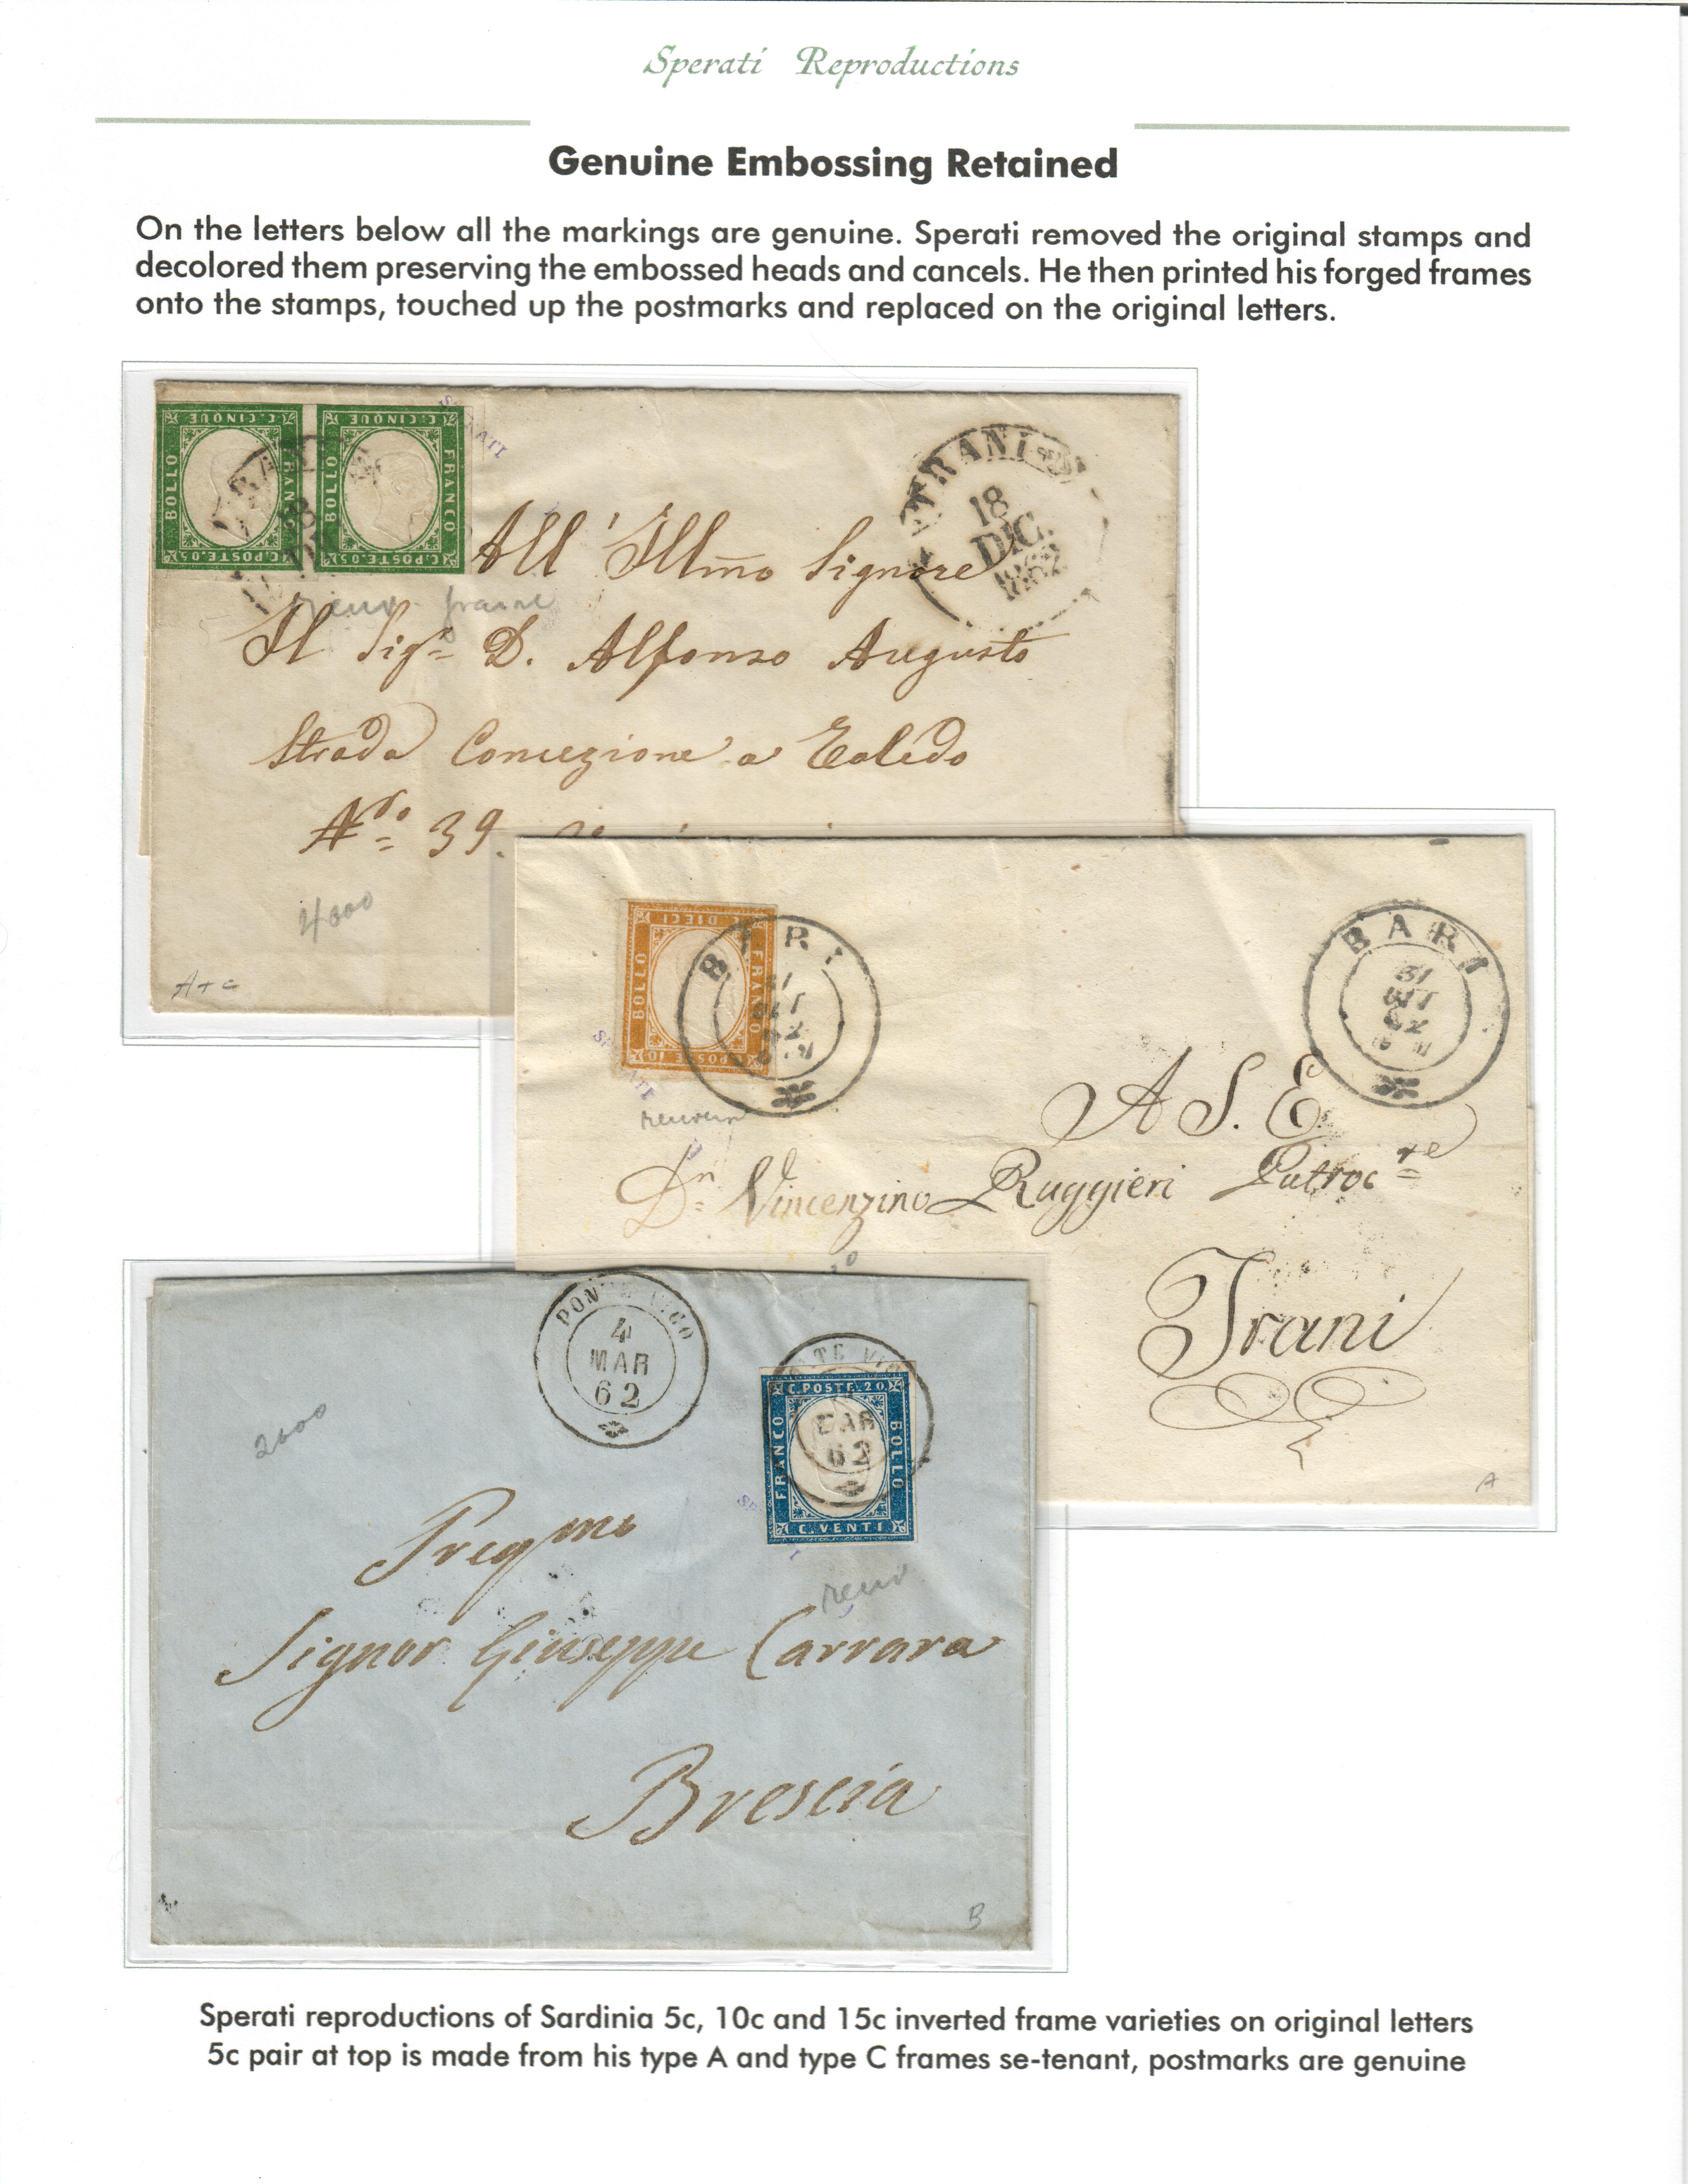 Sperati Reproductions
Genuine Embossing Retained
On the letters below all the markings are genuine. Sperati removed the original stamps and
decolored them preserving the embossed heads and cancels. He then printed his forged frames
onto the stamps, touched up the postmarks and replaced on the original letters.
C. CINQUE
BOLLO
FRANCO
C.POSTE.05
C. CINQUE
BOLLO
FRANCO
C.POSTE.05
SPERATI
TRANI
18
DIC.
1862
All' Illmo Signore
frame
Il Sigr D. Alfonso Augusto
Strada Concezione a Toledo
No 39.
4000
A+C
C. DIECI
BOLLO
FRANCO
C.POSTE 10
BARI
BARI
31
62
SPERATI
A S. E.
Dn Vincenzino Ruggieri Patrocre
Trani
A
PONTE VICO
4
MAR
62
PONTE VICO
MAR
62
C.POSTE.20
FRANCO
BOLLO
C.VENTI
2600
Pregmo
Signor Giuseppe Carrara
Brescia
B
Sperati reproductions of Sardinia 5c, 10c and 15c inverted frame varieties on original letters
5c pair at top is made from his type A and type C frames se-tenant, postmarks are genuine